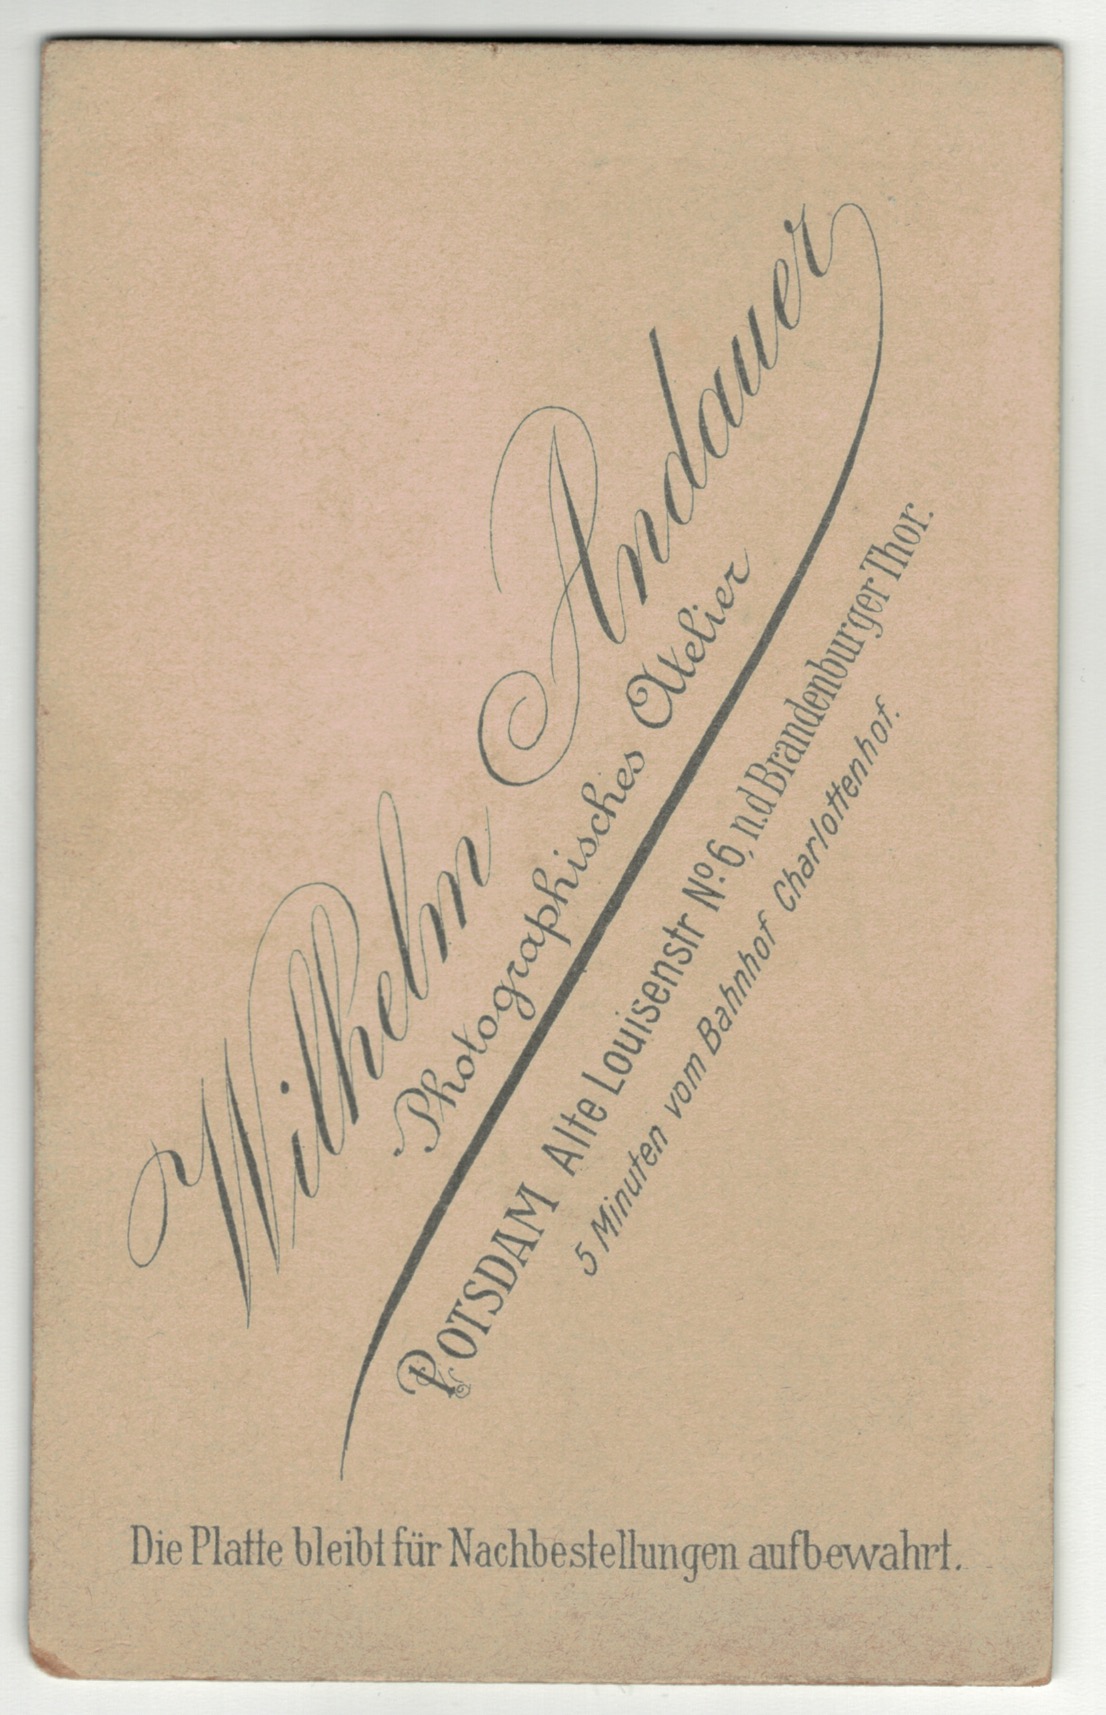 Wilhelm Andauer
Photographisches Atelier
POTSDAM Alte Louisenstr No. 6, n.d Brandenburger Thor.
5 Minuten vom Bahnhof Charlottenhof.
Die Platte bleibt für Nachbestellungen aufbewahrt.